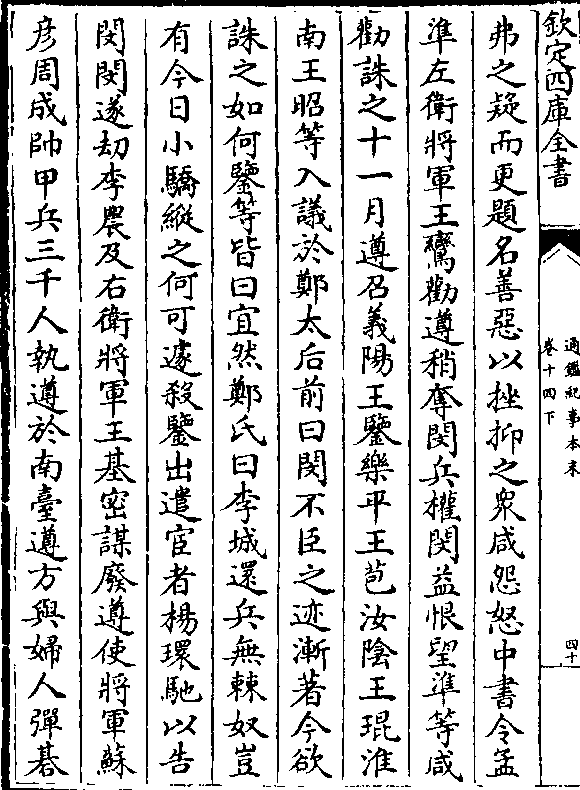 欽定四庫全書
通鑑紀事本末
卷十四下
四十
弗之疑而更題名善惡以挫抑之衆咸怨怒中書令孟
準左衛將軍王鸞勸遵稍奪閔兵權閔益恨望準等咸
勸誅之十一月遵召義陽王鑒樂平王苞汝陰王琨淮
南王昭等入議於鄭太后前曰閔不臣之迹漸著今欲
誅之如何鑒等皆曰宜然鄭氏曰李城還兵無棘奴豈
有今日小驕縱之何可遽殺鑒出遣宦者楊環馳以告
閔閔遂刼李農及右衛將軍王基密謀廢遵使將軍蘇
彦周成帥甲兵三千人執遵於南臺遵方與婦人彈碁